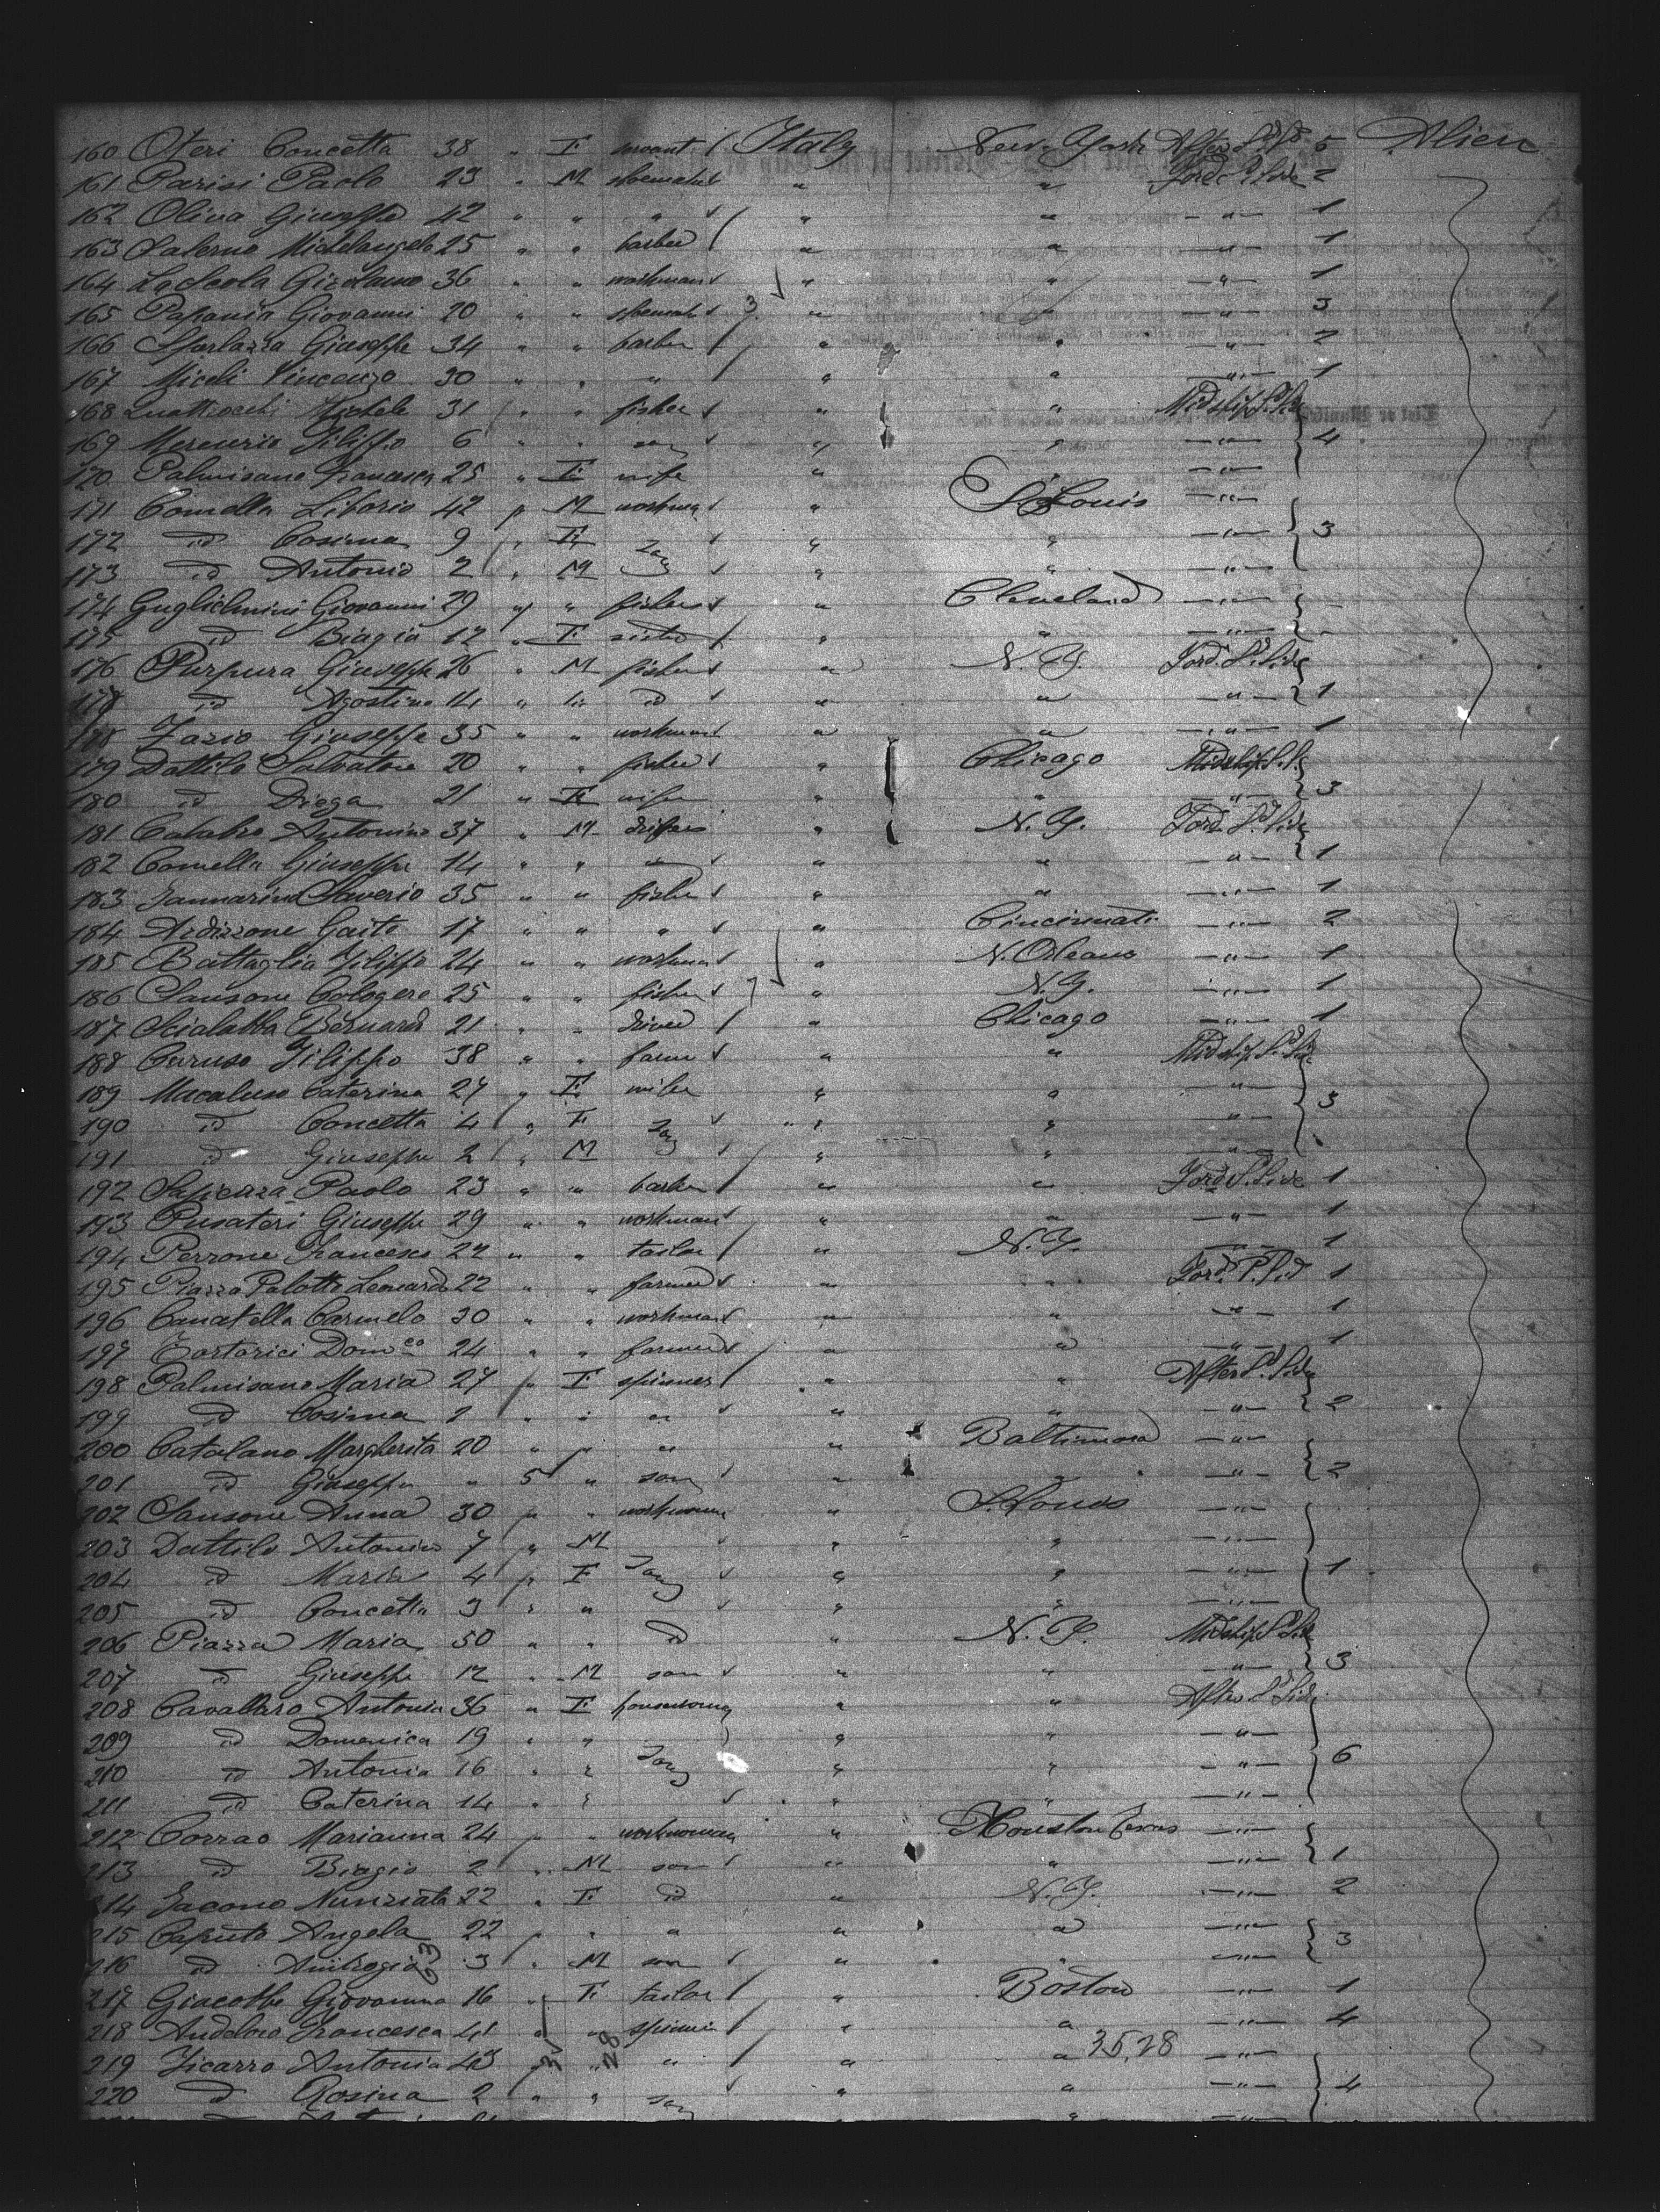 160 Oteri Concetta 38 " F servant Italy New-York After S.d S.e 5 Alien
161 Parisi Paolo 23 " M shoemaker " " Ford S. Side 2
162 Oliva Giuseppe 42 " " " " " " 1
163 Salerno Michelangelo 25 " " barber " " " 1
164 LaScola Girolamo 36 " " workman " " " 1
165 Papania Giovanni 20 " " shoemak " " " 3
166 Sfarlazza Giuseppe 34 " " barber " " " 2
167 Miceli Vincenzo 30 " " " " " " 1
168 Quattrocchi Michele 31 " " fisher " " Midship S. Side
169 Mercurio Filippo 6 " " son " " " 4
170 Palmisano Francesca 25 " F wife " "
171 Comella Liborio 42 " M workman " St Louis "
172 id Cosima 9 " F " " " 3
173 id Antonio 2 " M " " "
174 Guglielmini Giovanni 29 " " fisher " Cleveland "
175 id Biagia 17 " F sister " " "
176 Purpura Giuseppe 26 " M fisher " N.Y. Ford. S.d Side
177 id Agostino 14 " " id " " " 1
178 Fazio Giuseppe 35 " " workman " " " 1
179 Dattilo Salvatore 20 " " fisher " Chicago Midship S.S.
180 id Diega 21 " F wife " " " 3
181 Calabro Antonino 37 " M " N.Y. Ford S.d Side
182 Comella Giuseppe 14 " " " " " " 1
183 Iannarino Saverio 35 " " fisher " " " 1
184 Ardizzone Gaito 17 " " " " Cincinnati " 2
185 Battaglia Filippo 24 " " workman " N. Orleans " 1
186 Sansone Calogero 25 " " fisher " N.Y. " 1
187 Scialabba Bernard 21 " " driver " Chicago " 1
188 Caruso Filippo 38 " " farmer " " Midship S.d Side
189 Macaluso Caterina 27 " F wife " " "
190 id Concetta 4 " F " " " 3
191 id Giuseppe 2 " M " " "
192 Sapienza Paolo 23 " " barber " " Ford S. Side 1
193 Pusateri Giuseppe 29 " " workman " " " 1
194 Perrone Francesco 27 " " tailor " N.Y. " 1
195 Piazza Palotto Leonardo 22 " " farmer " " Ford. P. Sid 1
196 Canatella Carmelo 30 " " workman " " " 1
197 Tortorici Dom.co 24 " " farmer " " " 1
198 Palmisano Maria 27 " F spinner " " After S. Side
199 id Cosima " " " " " " 2
200 Catalano Margherita 20 " " " " Baltimora "
201 id Giuseppe " 5 " son " " " 2
202 Sansone Anna 30 " " workwoman " S. Louis "
203 Dattilo Antonino 7 " M " " "
204 id Maria 4 " F " " " 1
205 id Concetta 3 " " " " "
206 Piazza Maria 50 " " id " N.Y. Midship S. Side
207 id Giuseppe 12 " M son " " " 3
208 Cavallaro Antonia 36 " F " " After S. Side
209 id Domenica 19 " " " " "
210 id Antonia 16 " " " " " 6
211 id Caterina 14 " " " " "
212 Corrao Marianna 24 " " workwoman " Houston Texas "
213 id Biagio 2 " M son " " " 1
214 Iacono Nunziata 22 " F id " N.Y. " 2
215 Caputo Angela 22 " " " " " "
216 id Ambrogio 3 " M son " " " 3
217 Giacobbe Giovanna 16 " F tailor " Boston " 1
218 Andeloro Francesca 41 " " spinner " " " 4
219 Ficarro Antonia 43 " " " " " 35,28 "
220 id Rosina 2 " " " " " 4